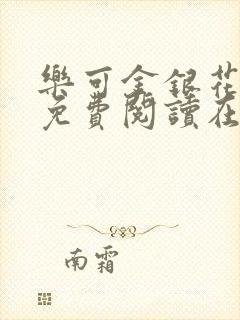 樂可金銀花
免費閱讀在
南霜